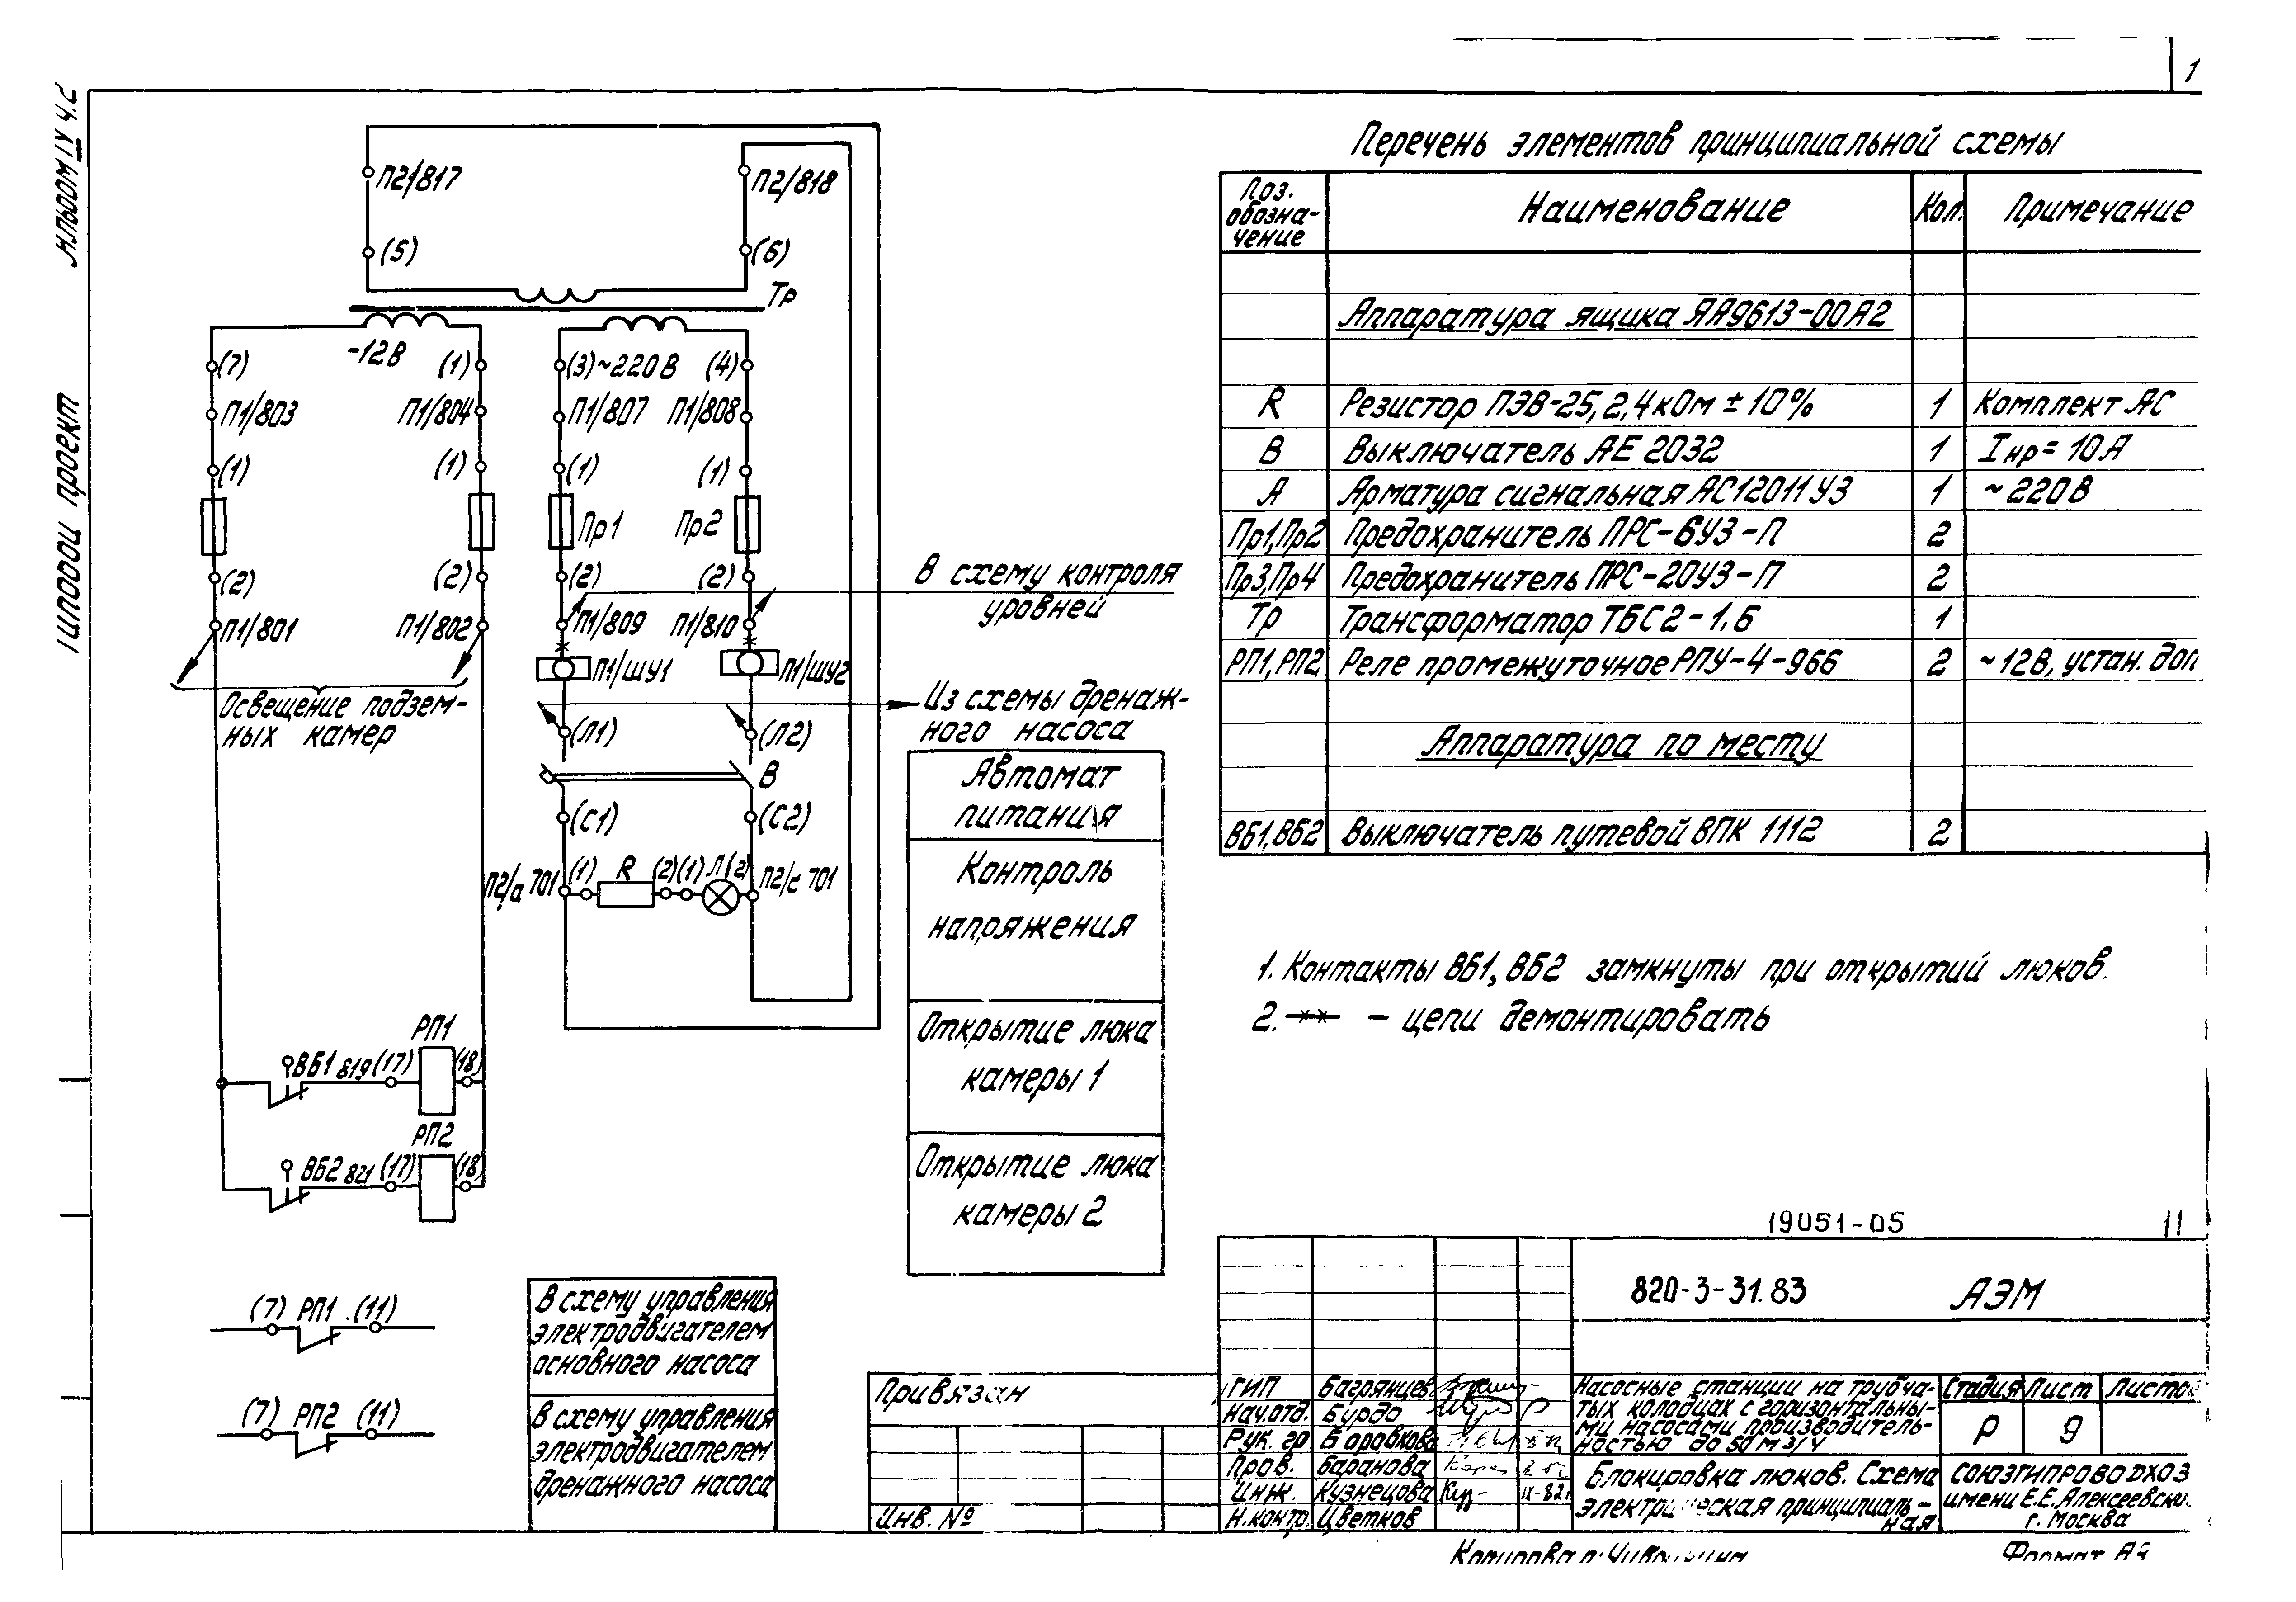 Альбом IV ч.2
Типовой проект
1
П2/817
П2/818
(5)
(6)
Тр
~12В
(7)
(1)
(3) ~220В (4)
П1/803
П1/804
П1/807
П1/808
(1)
(1)
(1)
(1)
Пр1
Пр2
(2)
(2)
(2)
(2)
П1/801
П1/802
П1/809
П1/810
В схему контроля
уровней
П1/ШУ1
П1/ШУ2
Освещение подзем-
ных камер
Из схемы дренаж-
ного насоса
(Л1)
(Л2)
В
(С1)
(С2)
П2/а 701
(1) R (2) (1) Л (2)
П2/с 701
Автомат
питания
Контроль
напряжения
Открытие люка
камеры 1
Открытие люка
камеры 2
РП1
ВБ1 819 (17)
(18)
РП2
ВБ2 821 (17)
(18)
(7) РП1 (11)
(7) РП2 (11)
В схему управления
электродвигателем
основного насоса
В схему управления
электродвигателем
дренажного насоса
Перечень элементов принципиальной схемы
Поз.
обозна-
чение
Наименование
Кол.
Примечание
Аппаратура ящика ЯА9613-00А2
R Резистор ПЭВ-25, 2,4кОм ± 10% 1 Комплект АС
В Выключатель АЕ 2032 1 Iнр = 10А
А Арматура сигнальная АС12011У3 1 ~220В
Пр1,Пр2 Предохранитель ПРС-6У3-П 2
Пр3,Пр4 Предохранитель ПРС-20У3-П 2
Тр Трансформатор ТБС2-1,6 1
РП1, РП2 Реле промежуточное РПУ-4-966 2 ~12В, устан. доп
Аппаратура по месту
ВБ1, ВБ2 Выключатель путевой ВПК 1112 2
1. Контакты ВБ1, ВБ2 замкнуты при открытий люков.
2. -×-×- – цепи демонтировать
19051-05
11
820-3-31.83 АЭМ
Привязан
Инв. №
ГИП Багрянцев
Нач.отд. Бурдо
Рук. гр Боровкова
Пров. Баранова
Инж. Кузнецова IX-82г
Н.контр. Цветков
Насосные станции на трубча-
тых колодцах с горизонтальны-
ми насосами производитель-
ностью до 50 м3/ч
Стадия Лист Листов
Р 9
Блокировка люков. Схема
электрическая принципиаль-
ная
СОЮЗГИПРОВОДХОЗ
имени Е.Е. Алексеевско
г. Москва
Копировал:
Формат А3